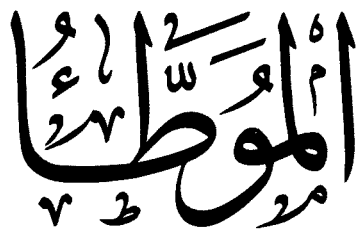 الموُطَّأ